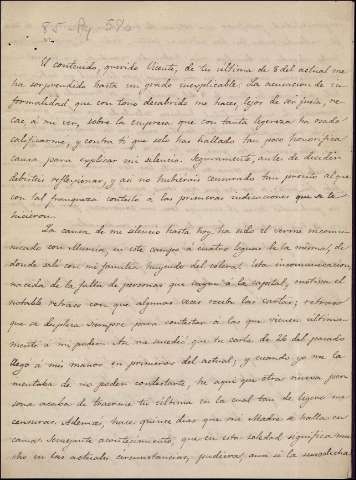 85 - Ag 580
El contenido, querido Vicente, de tu última de 8 del actual me
ha sorprendido hasta un grado inexplicable. La acusacion de in-
formalidad que con tono desabrido me haces, lejos de ser justa, re-
cae, á mi ver, sobre la empresa que con tanta ligereza ha osado
calificarme, y contra ti que solo has hallado tan poco honorifica
causa para explicar mi silencio. Seguramente, antes de decidir
debisteis reflexionar, y asi no hubierais censurado tan pronto al que
con tal franqueza contestó á las primeras indicaciones que se le
hicieron.
La causa de mi silencio hasta hoy ha sido el verme incomu-
nicado con Murcia, en este campo á cuatro leguas de la misma, de
donde salí con mi familia huyendo del cólera: esta incomunicacion,
nacida de la falta de personas que vayan á la capital, motiva el
notable retraso con que algunas veces recibo las cartas; retraso
que se duplica siempre para contestar á las que vienen última-
mente á mi poder. Asi me sucedió que tu carta de 26 del pasado
llegó á mis manos en primeros del actual; y cuando yo me la-
mentaba de no poder contestarte, he aquí que otra nueva per-
sona acaba de traerme tu última en la cual tan de ligero me
censuras. Además, hace quince dias que mi Madre se halla en
cama. Semejante acontecimiento, que en esta soledad significa mu-
cho en las actuales circunstancias, pudiera, aun si la